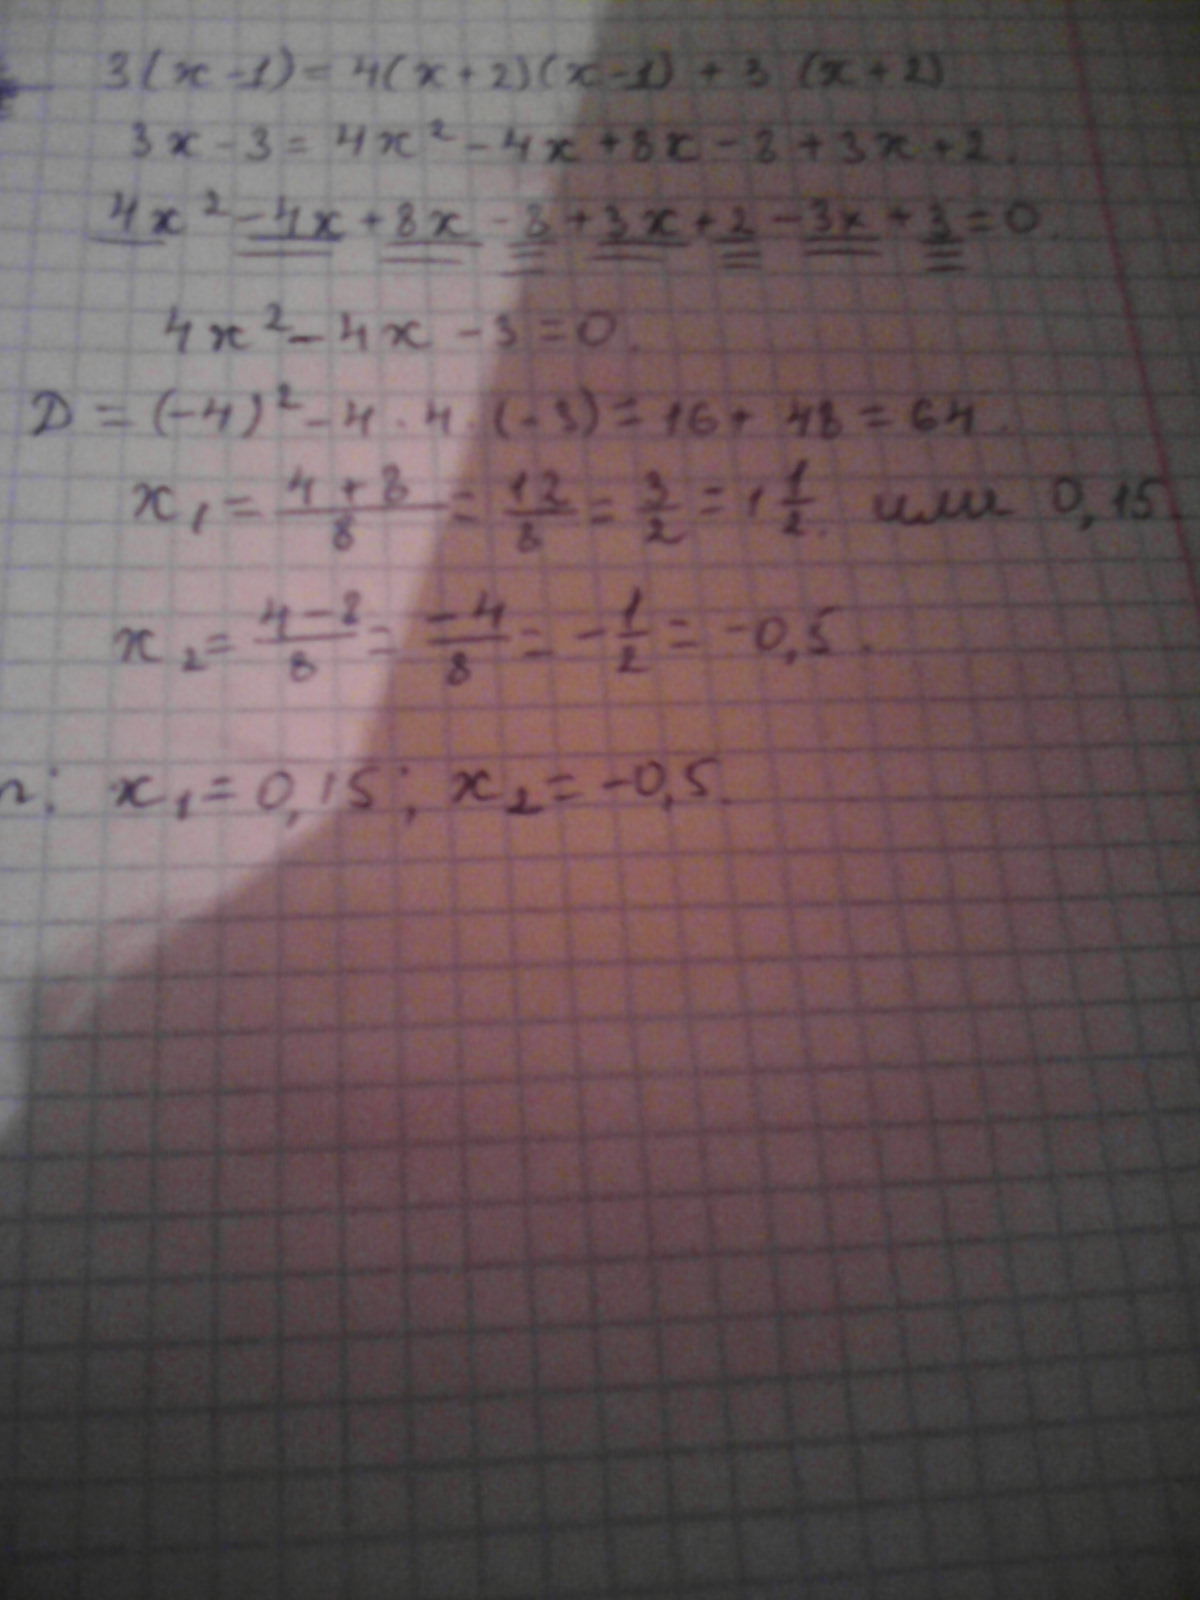 3(x-1) = 4(x+2)(x-1) + 3 (x+2)
3x - 3 = 4x² - 4x + 8x - 8 + 3x + 2.
4x² - 4x + 8x - 8 + 3x + 2 - 3x + 3 = 0.
4x² - 4x - 3 = 0.
D = (-4)² - 4 · 4 · (-3) = 16 + 48 = 64.
x₁ = 4+8/8 = 12/8 = 3/2 = 1 1/2. или 0,15
x₂ = 4-8/8 = -4/8 = -1/2 = -0,5.
т: x₁ = 0,15; x₂ = -0,5.